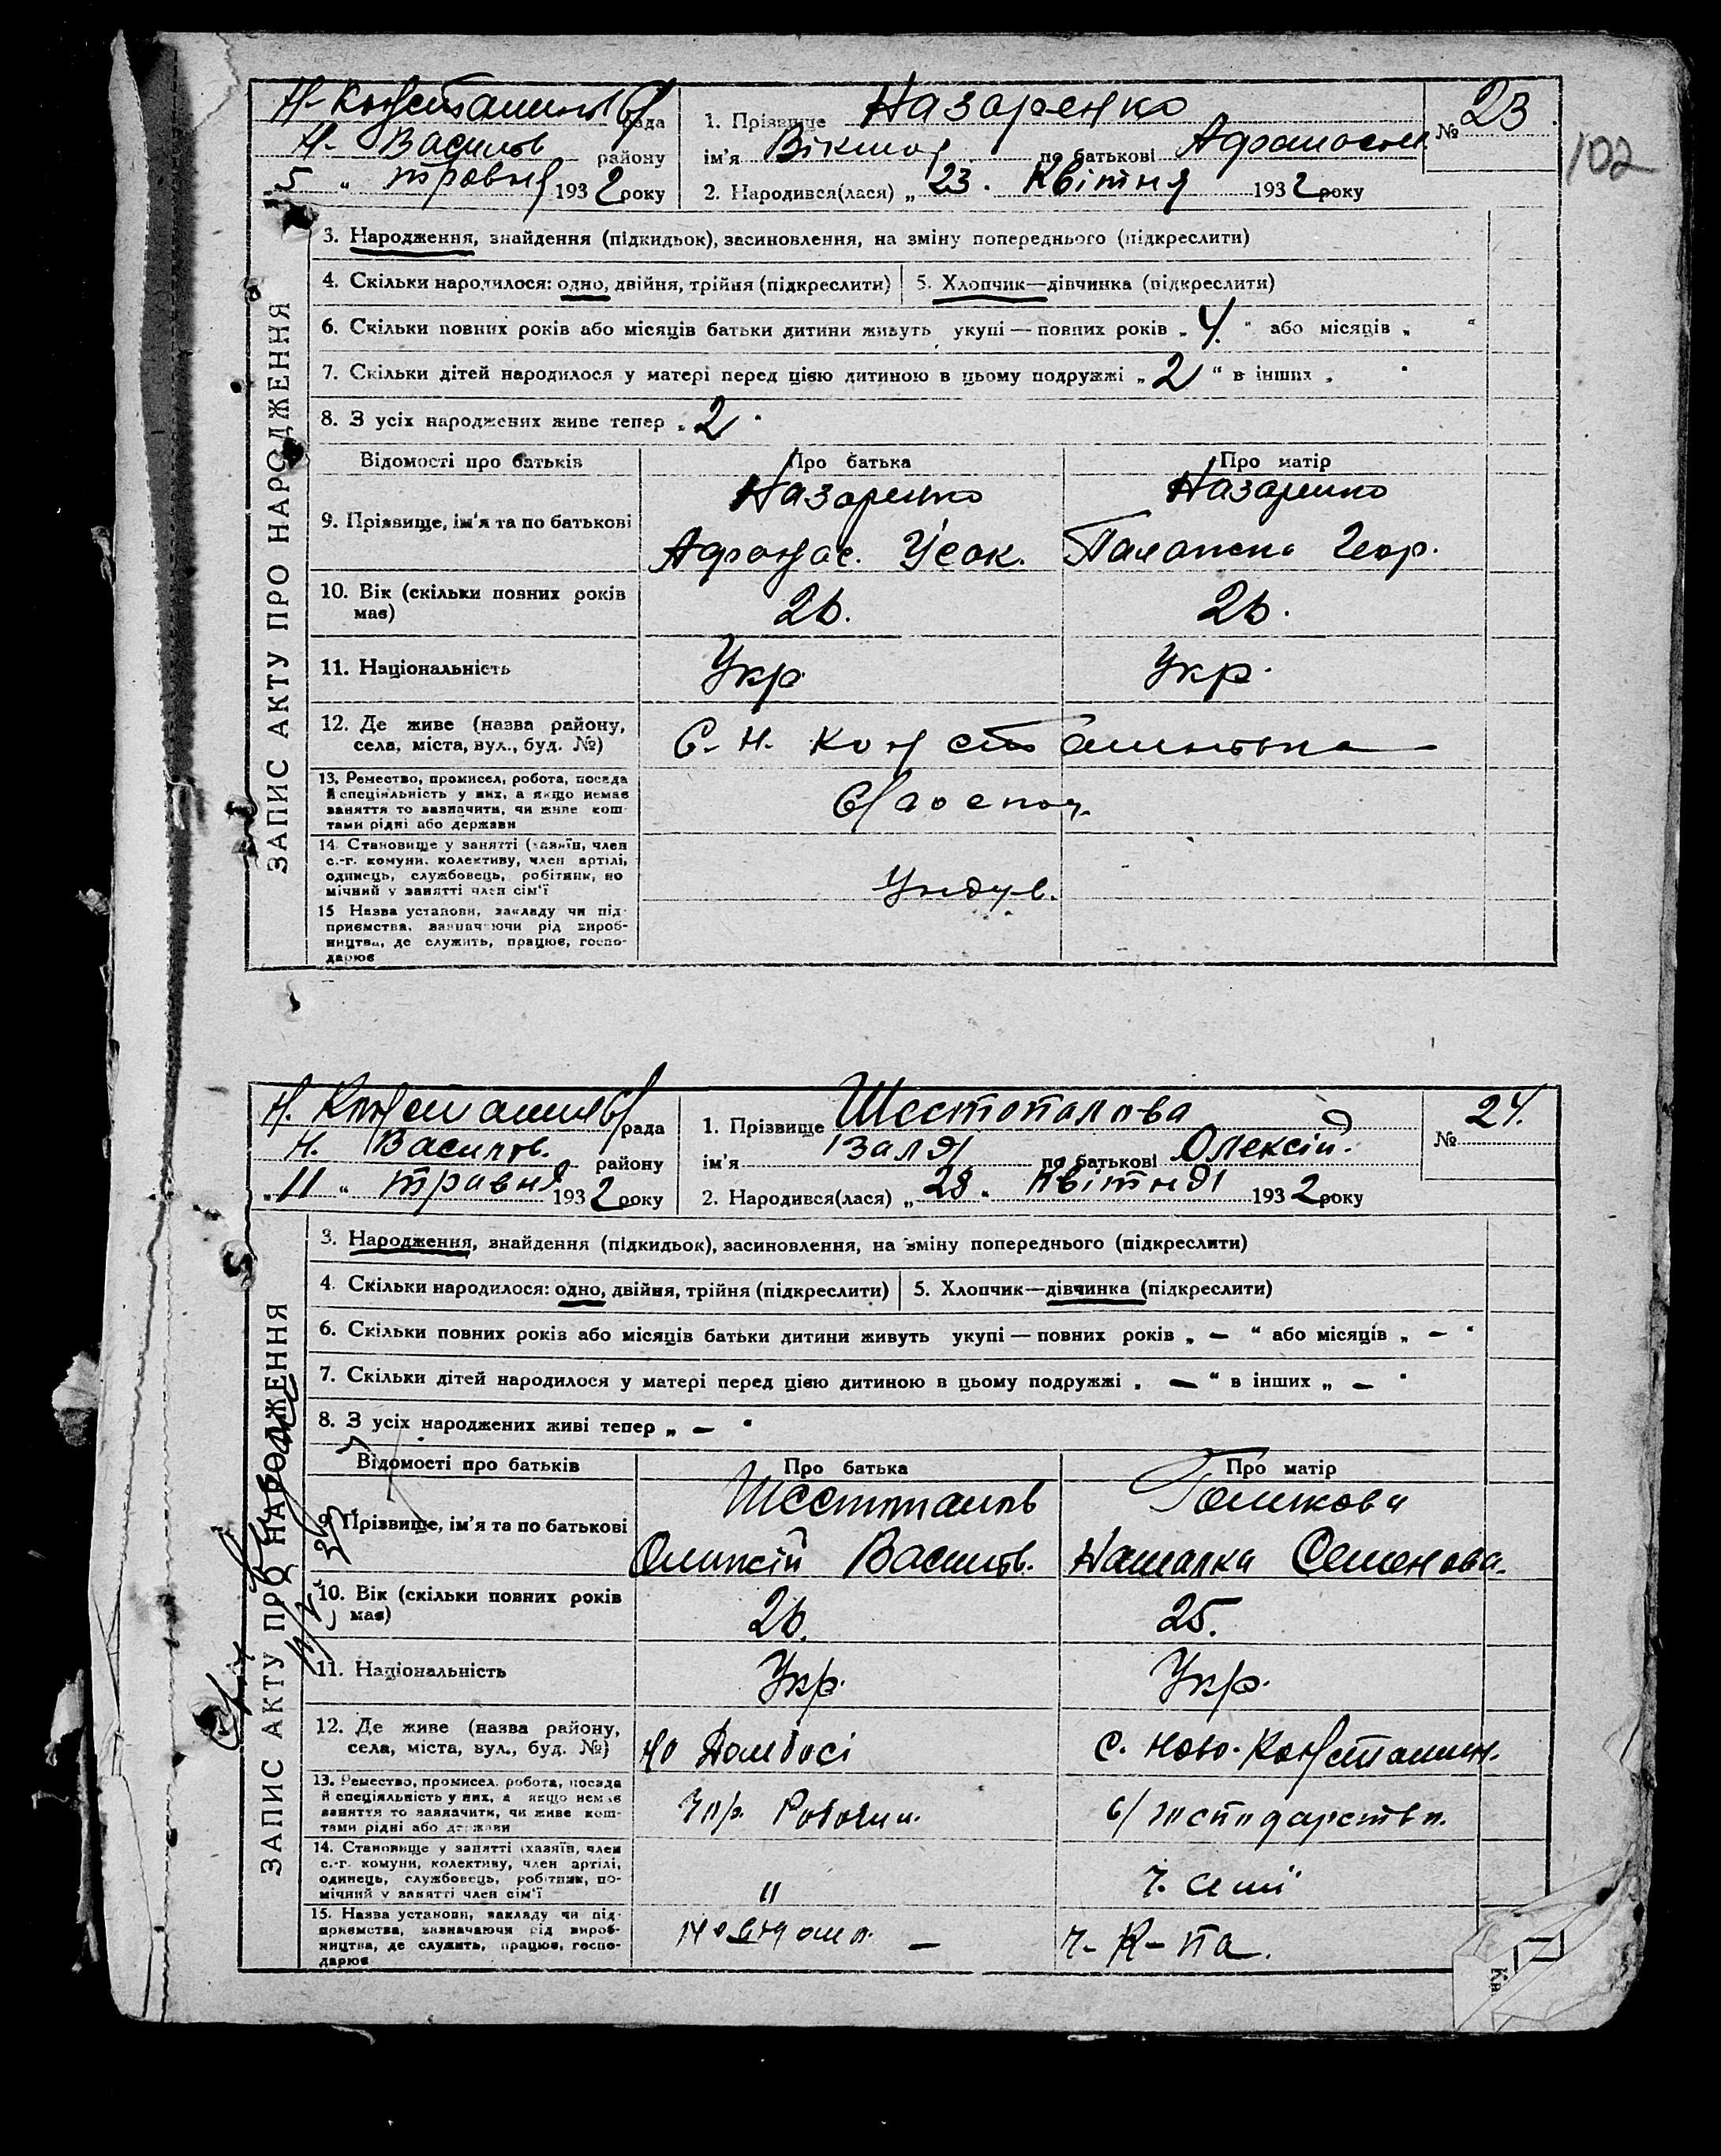 Н- Констатинов рада
Н- Васильв району
"5" травня 1932 року
1. Прізвище Назаренко
ім'я Віктор по батькові Афанасов
2. Народився(лася) „23" квітня 1932 року
№ 23
102
ЗАПИС АКТУ ПРО НАРОДЖЕННЯ
3. Народження, знайдення (підкидьок), засиновлення, на зміну попереднього (підкреслити)
4. Скільки народилося: одно, двійня, трійня (підкреслити) 5. Хлопчик—дівчинка (підкреслити)
6. Скільки повних років або місяців батьки дитини живуть укупі — повних років „4." або місяців „ "
7. Скільки дітей народилося у матері перед цією дитиною в цьому подружжі „2" в інших „ "
8. З усіх народжених живе тепер „2"
Відомості про батьків Про батька Про матір
9. Прізвище, ім'я та по батькові
Назаренко Назаренко
Афанас. Усак. Палажка Геор.
10. Вік (скільки повних років має) 26. 26.
11. Національність Укр. Укр.
12. Де живе (назва району,
села, міста, вул., буд. №)
С. Н. Констатиновка
13. Ремество, промисел, робота, посада
й спеціяльність у них, а якщо немає
заняття то зазначити, чи живе кош-
тами рідні або держави
С/господ.
14. Становище у занятті (хазяїн, член
с.-г. комуни, колективу, член артілі,
одинець, службовець, робітник, по
мічний у занятті член сім'ї
Ундув.
15 Назва установи, закладу чи під-
приємства, зазначаючи рід вироб-
ництва, де служить, працює, госпо-
дарює
Н. Констатинов рада
Н. Васильв. району
„11" травня 1932 року
1. Прізвище Шестопалова
ім'я Ізаля по батькові Олексій.
2. Народився(лася) „28" квітня 1932 року
№ 24.
ЗАПИС АКТУ ПРО НАРОДЖЕННЯ
3. Народження, знайдення (підкидьок), засиновлення, на зміну попереднього (підкреслити)
4. Скільки народилося: одно, двійня, трійня (підкреслити) 5. Хлопчик—дівчинка (підкреслити)
6. Скільки повних років або місяців батьки дитини живуть укупі — повних років „ — " або місяців „ — "
7. Скільки дітей народилося у матері перед цією дитиною в цьому подружжі „ — " в інших „ — "
8. З усіх народжених живі тепер „ — "
Відомості про батьків Про батька Про матір
9. Прізвище, ім'я та по батькові
Шестопалов
Олексій Васильв. Наталка Семенова.
10. Вік (скільки повних років
має)
26. 25.
11. Національність Укр. Укр.
12. Де живе (назва району,
села, міста, вул., буд. №)
на Донбасі с. Ново-Констатин.
13. Ремество, промисел, робота, посада
й спеціяльність у них, а якщо немає
заняття то зазначити, чи живе кош-
тами рідні або держави
Робочий. с/господарство.
14. Становище у занятті (хазяїн, член
с.-г. комуни, колективу, член артілі,
одинець, службовець, робітник, по-
мічний у занятті член сім'ї
" Ч. семї
15. Назва установи, закладу чи під-
приємства, зазначаючи рід вироб-
ництва, де служить, працює, госпо-
дарює
невідомо. — Ч-К-па.